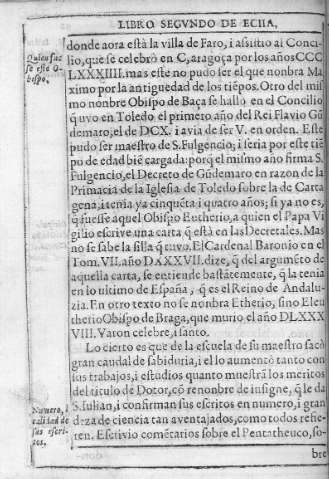 LIBRO SEGVNDO DE ECIIA,
donde aora està la villa de Faro, i assistio al Conci-
lio, que se celebrò en C,aragoça por los años CCC
LXXXIIII. mas este no pudo ser el que nonbra Ma
ximo por la antiguedad de los tiẽpos. Otro del mis
mo nonbre Obispo de Baça se hallò en el Concilio
q̃ uvo en Toledo el primero año del Rei Flavio Gũ
demaro, el de DCX. i avia de ser V. en orden. Este
pudo ser maestro de S. Fulgencio; i seria por este tiẽ
po de edad biẽ cargada: porq̃ el mismo año firma S.
Fulgencio, el Decreto de Gũdemaro en razon de la
Primacia de la Iglesia de Toledo sobre la de Carta
gena, i tenia ya cinquẽta i quatro años; si ya no es,
q̃ fuesse aquel Obispo Eutherio, a quien el Papa Vi
gilio escrive una carta q̃ està en las Decretales. Mas
no se sabe la silla q̃ tuvo. El Cardenal Baronio en el
Tom. VII. año DXXXVII. dize, q̃ del argumẽto de
aquella carta, se entiende bastãtemente, q̃ la tenia
en lo ultimo de España, q̃ es el Reino de Andalu-
zia. En otro texto no se nonbra Etherio, sino Eleu
therio Obispo de Braga, que murio el año DLXXX
VIII. Varon celebre, i santo.
Lo cierto es que de la escuela de su maestro sacò
gran caudal de sabiduria, i el lo aumentò tanto con
sus trabajos, i estudios quanto muestrã los meritos
del titulo de Dotor, cõ renonbre de insigne, q̃ le da
S. Iulian, i confirman sus escritos en numero, i gran
deza de ciencia tan aventajados, como todos refie-
ren. Escrivio comẽtarios sobre el Pentatheuco, so-
bre
Quien fue
se este O-
bispo.
Numero, i
calidad de
sus escri-
tos.